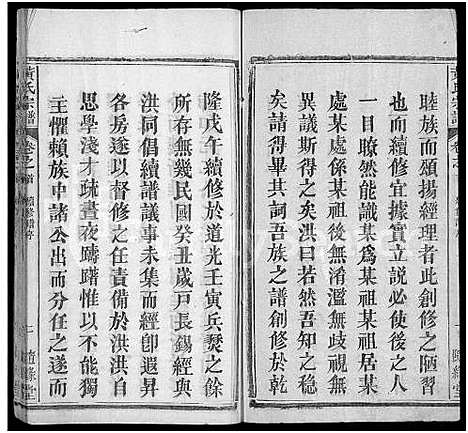 黃氏宗譜
卷之首
睦族而頌揚經理者此創修之陋習
也而續修宜據實立說俾閱斯譜者
一目瞭然能識某為某祖某居某間
處某處係某祖後無淆濫無歧視無
異議斯得之矣洪曰若然吾知之穩
矣請得畢其詞吾族之譜創修於乾
隆戊午續修於道光壬寅兵燹之餘
所存無幾民國癸丑歲戶長錫經與
洪同倡續譜議事未集而經即遐昇
各房遂以督修之責任責備於洪洪
思學淺才疎晝夜躊躇惜不能獨自
主懼賴族中諸公出而分任之遂而
黃氏宗譜
卷之首
續修譜序